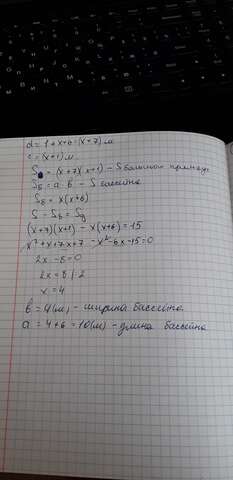 d = 1+x+6 = (x+7) м
c = (x+1) м
S = (x+7)(x+1) - S большого
Sб = a · b - S бассейна
Sб = x(x+6)
S = Sб = Sд
(x+7)(x+1) - x(x+6) = 15
x² + x + 7x + 7 - x² - 6x - 15 = 0
2x - 8 = 0
2x = 8 | 2
x = 4
b = 4(м) - ширина бассейна
a = 4 + 6 = 10(м) - длина бассейна